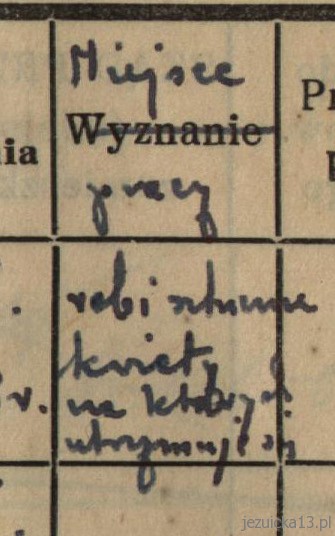 Miejsce
Wyznanie
pracy
nia
Pr
robi sztuczne
kwiaty
na których
utrzymuje się
v.
jezuicka13.pl